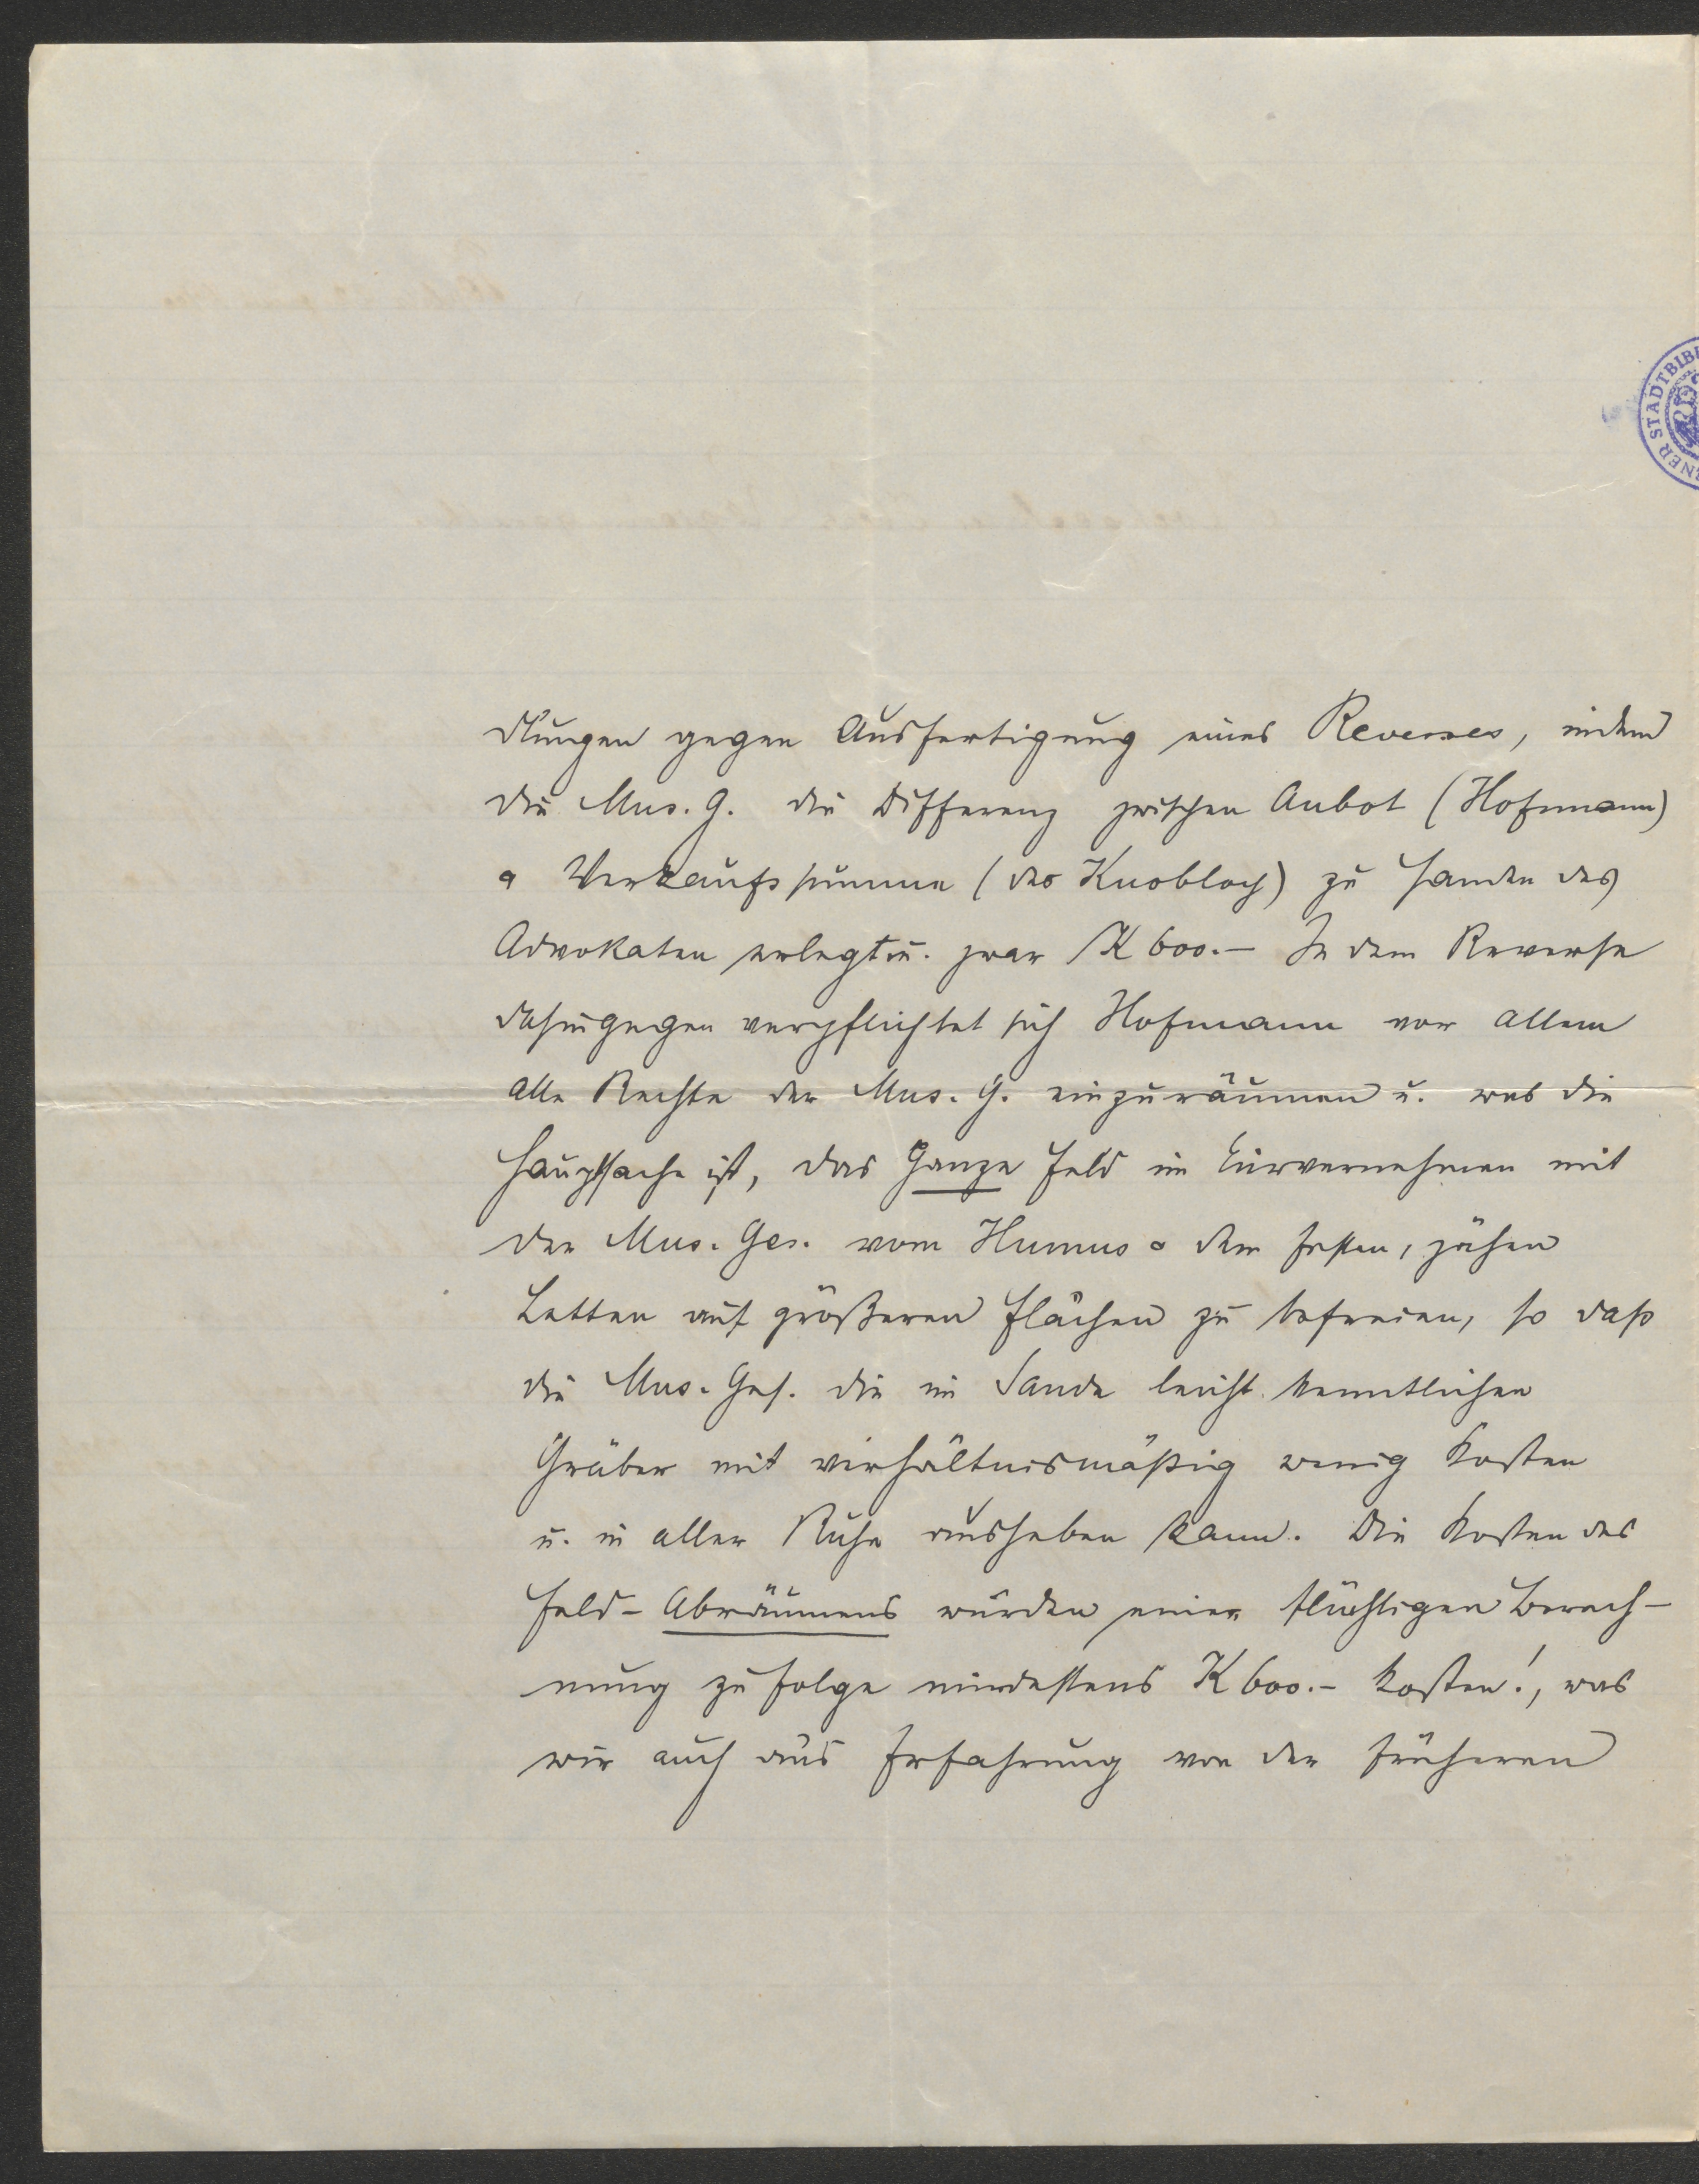 dlungen gegen Ausfertigung eines Reverses, indem
die Mus. G. die Differenz zwischen Anbot (Hofmann)
& Verkaufssumme (des Knobloch) zu Handen des
Advokaten erlegt u. zwar K 600.— In dem Reverse
dahingegen verpflichtet sich Hofmann vor allem
alle Rechte der Mus. G. einzuräumen u. was die
Hauptsache ist, das Ganze Feld im Einvernehmen mit
der Mus. Ges. vom Humus & dem festen, zähen
Letten auf größeren Flächen zu befreien, so daß
die Mus. Ges. die im Sande leicht kenntlichen
Gräber mit verhältnismäßig wenig Kosten
u. in aller Ruhe ausheben kann. Die Kosten des
Feld-Abräumens würden einer flüchtigen Berech-
nung zu folge mindestens K 600.- kosten!, was
wir auch aus Erfahrung von der früheren
NER STADTBIB